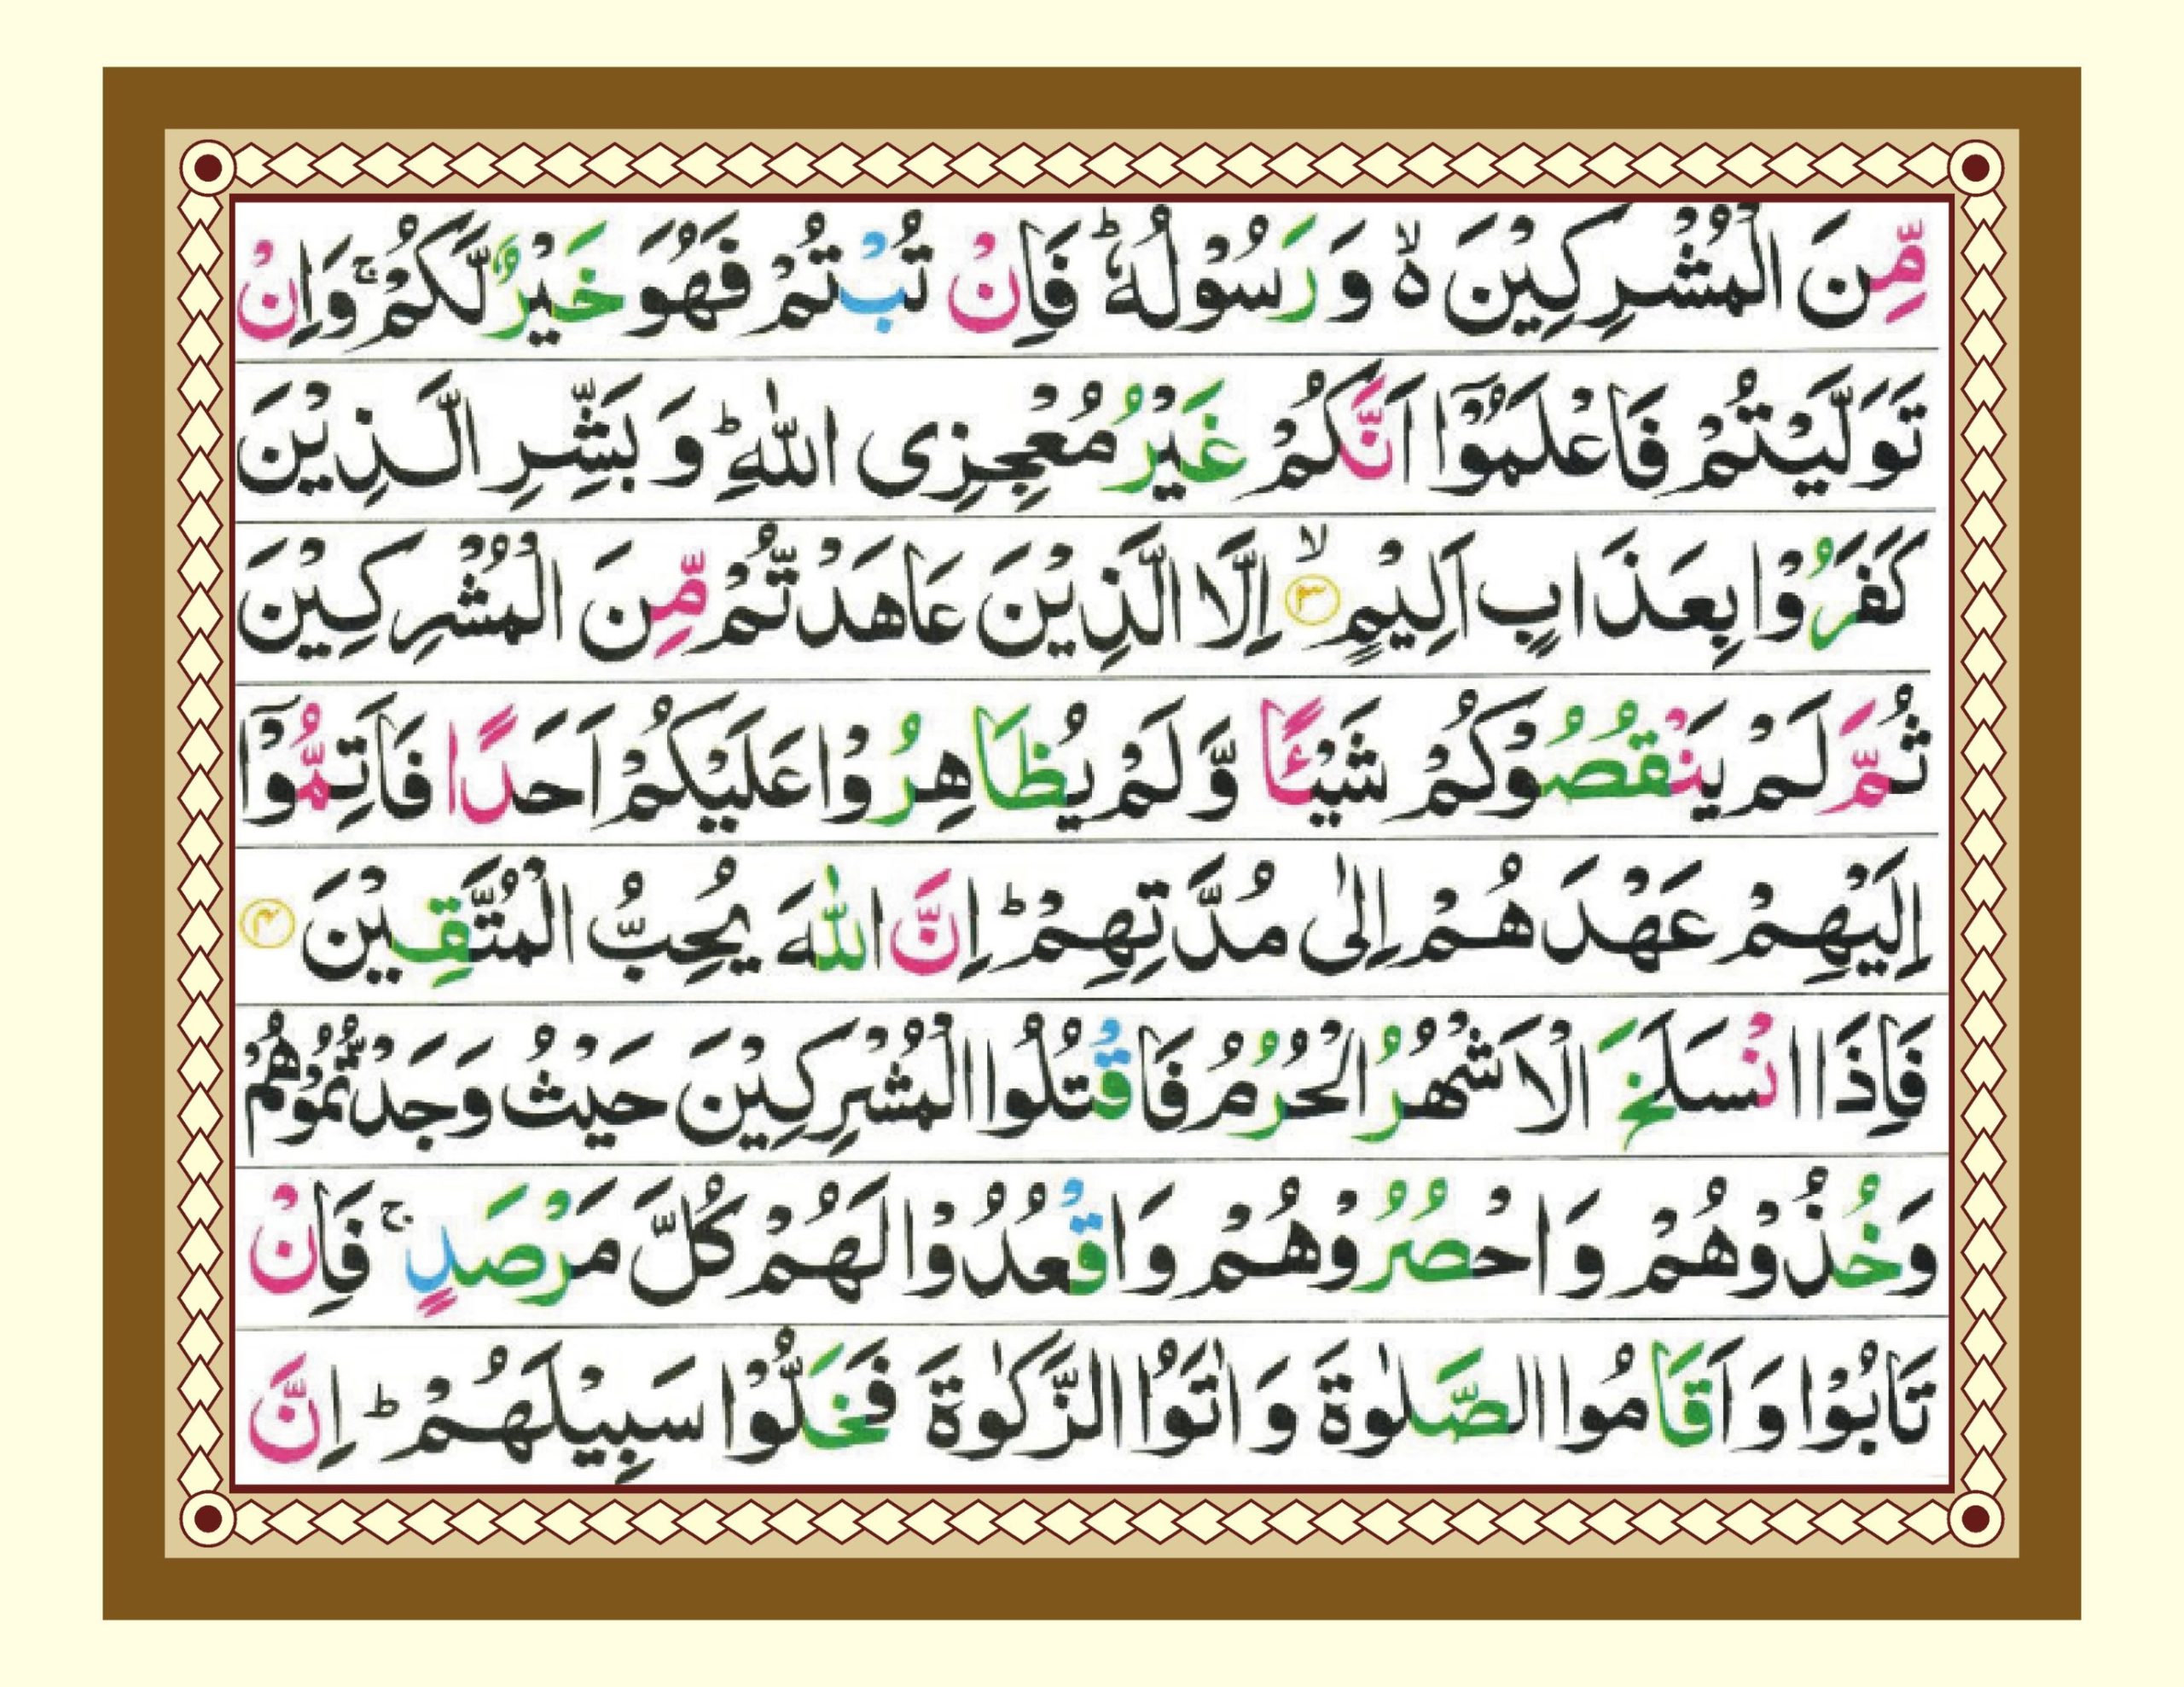 مِّنَ الْمُشْرِكِيْنَ ۙ۬ وَ رَسُوْلُهٗ ؕ فَاِنْ تُبْتُمْ فَهُوَ خَيْرٌ لَّكُمْ ۚ وَاِنْ
تَوَلَّيْتُمْ فَاعْلَمُوْۤا اَنَّكُمْ غَيْرُ مُعْجِزِى اللّٰهِ ؕ وَ بَشِّرِ الَّذِيْنَ
كَفَرُوْا بِعَذَابٍ اَلِيْمٍ ۙ ﴿۳﴾ اِلَّا الَّذِيْنَ عَاهَدْتُّمْ مِّنَ الْمُشْرِكِيْنَ
ثُمَّ لَمْ يَنْقُصُوْكُمْ شَيْـًٔا وَّ لَمْ يُظَاهِرُوْا عَلَيْكُمْ اَحَدًا فَاَتِمُّوْۤا
اِلَيْهِمْ عَهْدَهُمْ اِلٰى مُدَّتِهِمْ ؕ اِنَّ اللّٰهَ يُحِبُّ الْمُتَّقِيْنَ ﴿۴﴾
فَاِذَا انْسَلَخَ الْاَشْهُرُ الْحُرُمُ فَاقْتُلُوا الْمُشْرِكِيْنَ حَيْثُ وَجَدْتُّمُوْهُمْ
وَخُذُوْهُمْ وَاحْصُرُوْهُمْ وَاقْعُدُوْا لَهُمْ كُلَّ مَرْصَدٍ ۚ فَاِنْ
تَابُوْا وَ اَقَامُوا الصَّلٰوةَ وَ اٰتَوُا الزَّكٰوةَ فَخَلُّوْا سَبِيْلَهُمْ ؕ اِنَّ